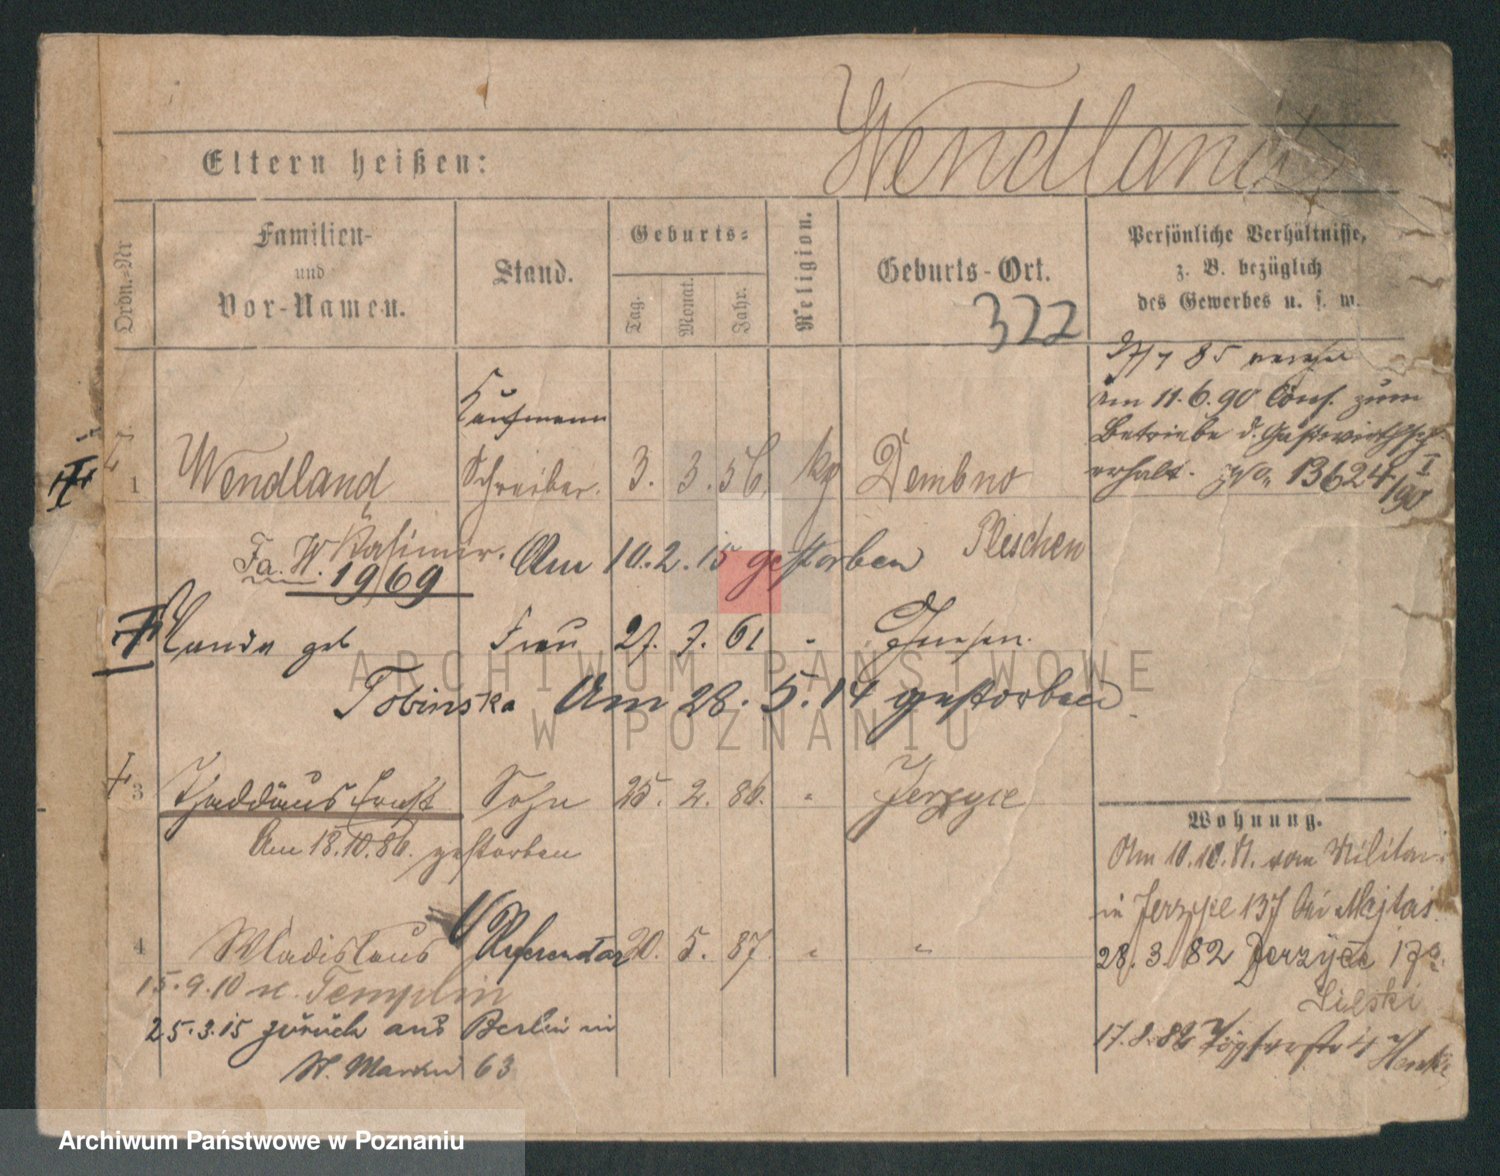 Wendland
Eltern heißen:
Ordn.-Nr
Familien-
und
Vor-Namen.
Stand.
Geburts-
Tag.
Monat.
Jahr.
Religion.
Geburts-Ort.
Persönliche Verhältnisse,
z. B. bezüglich
des Gewerbes u. s. w.
322
85
am 11.6.90 Cons. zum
Betriebe d. Gastwirthsch.
erhalt. 13624/90 I
Kaufmann
1 Wendland Schreiber. 3. 3. 56. kg Dembno
Kasimir. Pleschen
Am 10.2.15 gestorben
Fa. W. 1969
Wanda geb Frau 27. 7. 61 " Gnesen.
Tobinska Am 28.5.14 gestorben
3 Thaddäus Ernst Sohn 25. 2. 86. " Jerzyce
Am 18.10.86. gestorben
4 Wladislaus Referendar 20. 5. 87. " "
15.9.10 n. Templin
25.3.15 zurück aus Berlin in
St. Martin 63
Wohnung.
Am 10.10.81. vom Militair
in Jerzyce 137 bei Majtas.
28.3.82 Jerzyce
17.8.82
ARCHIWUM PAŃSTWOWE
W POZNANIU
Archiwum Państwowe w Poznaniu